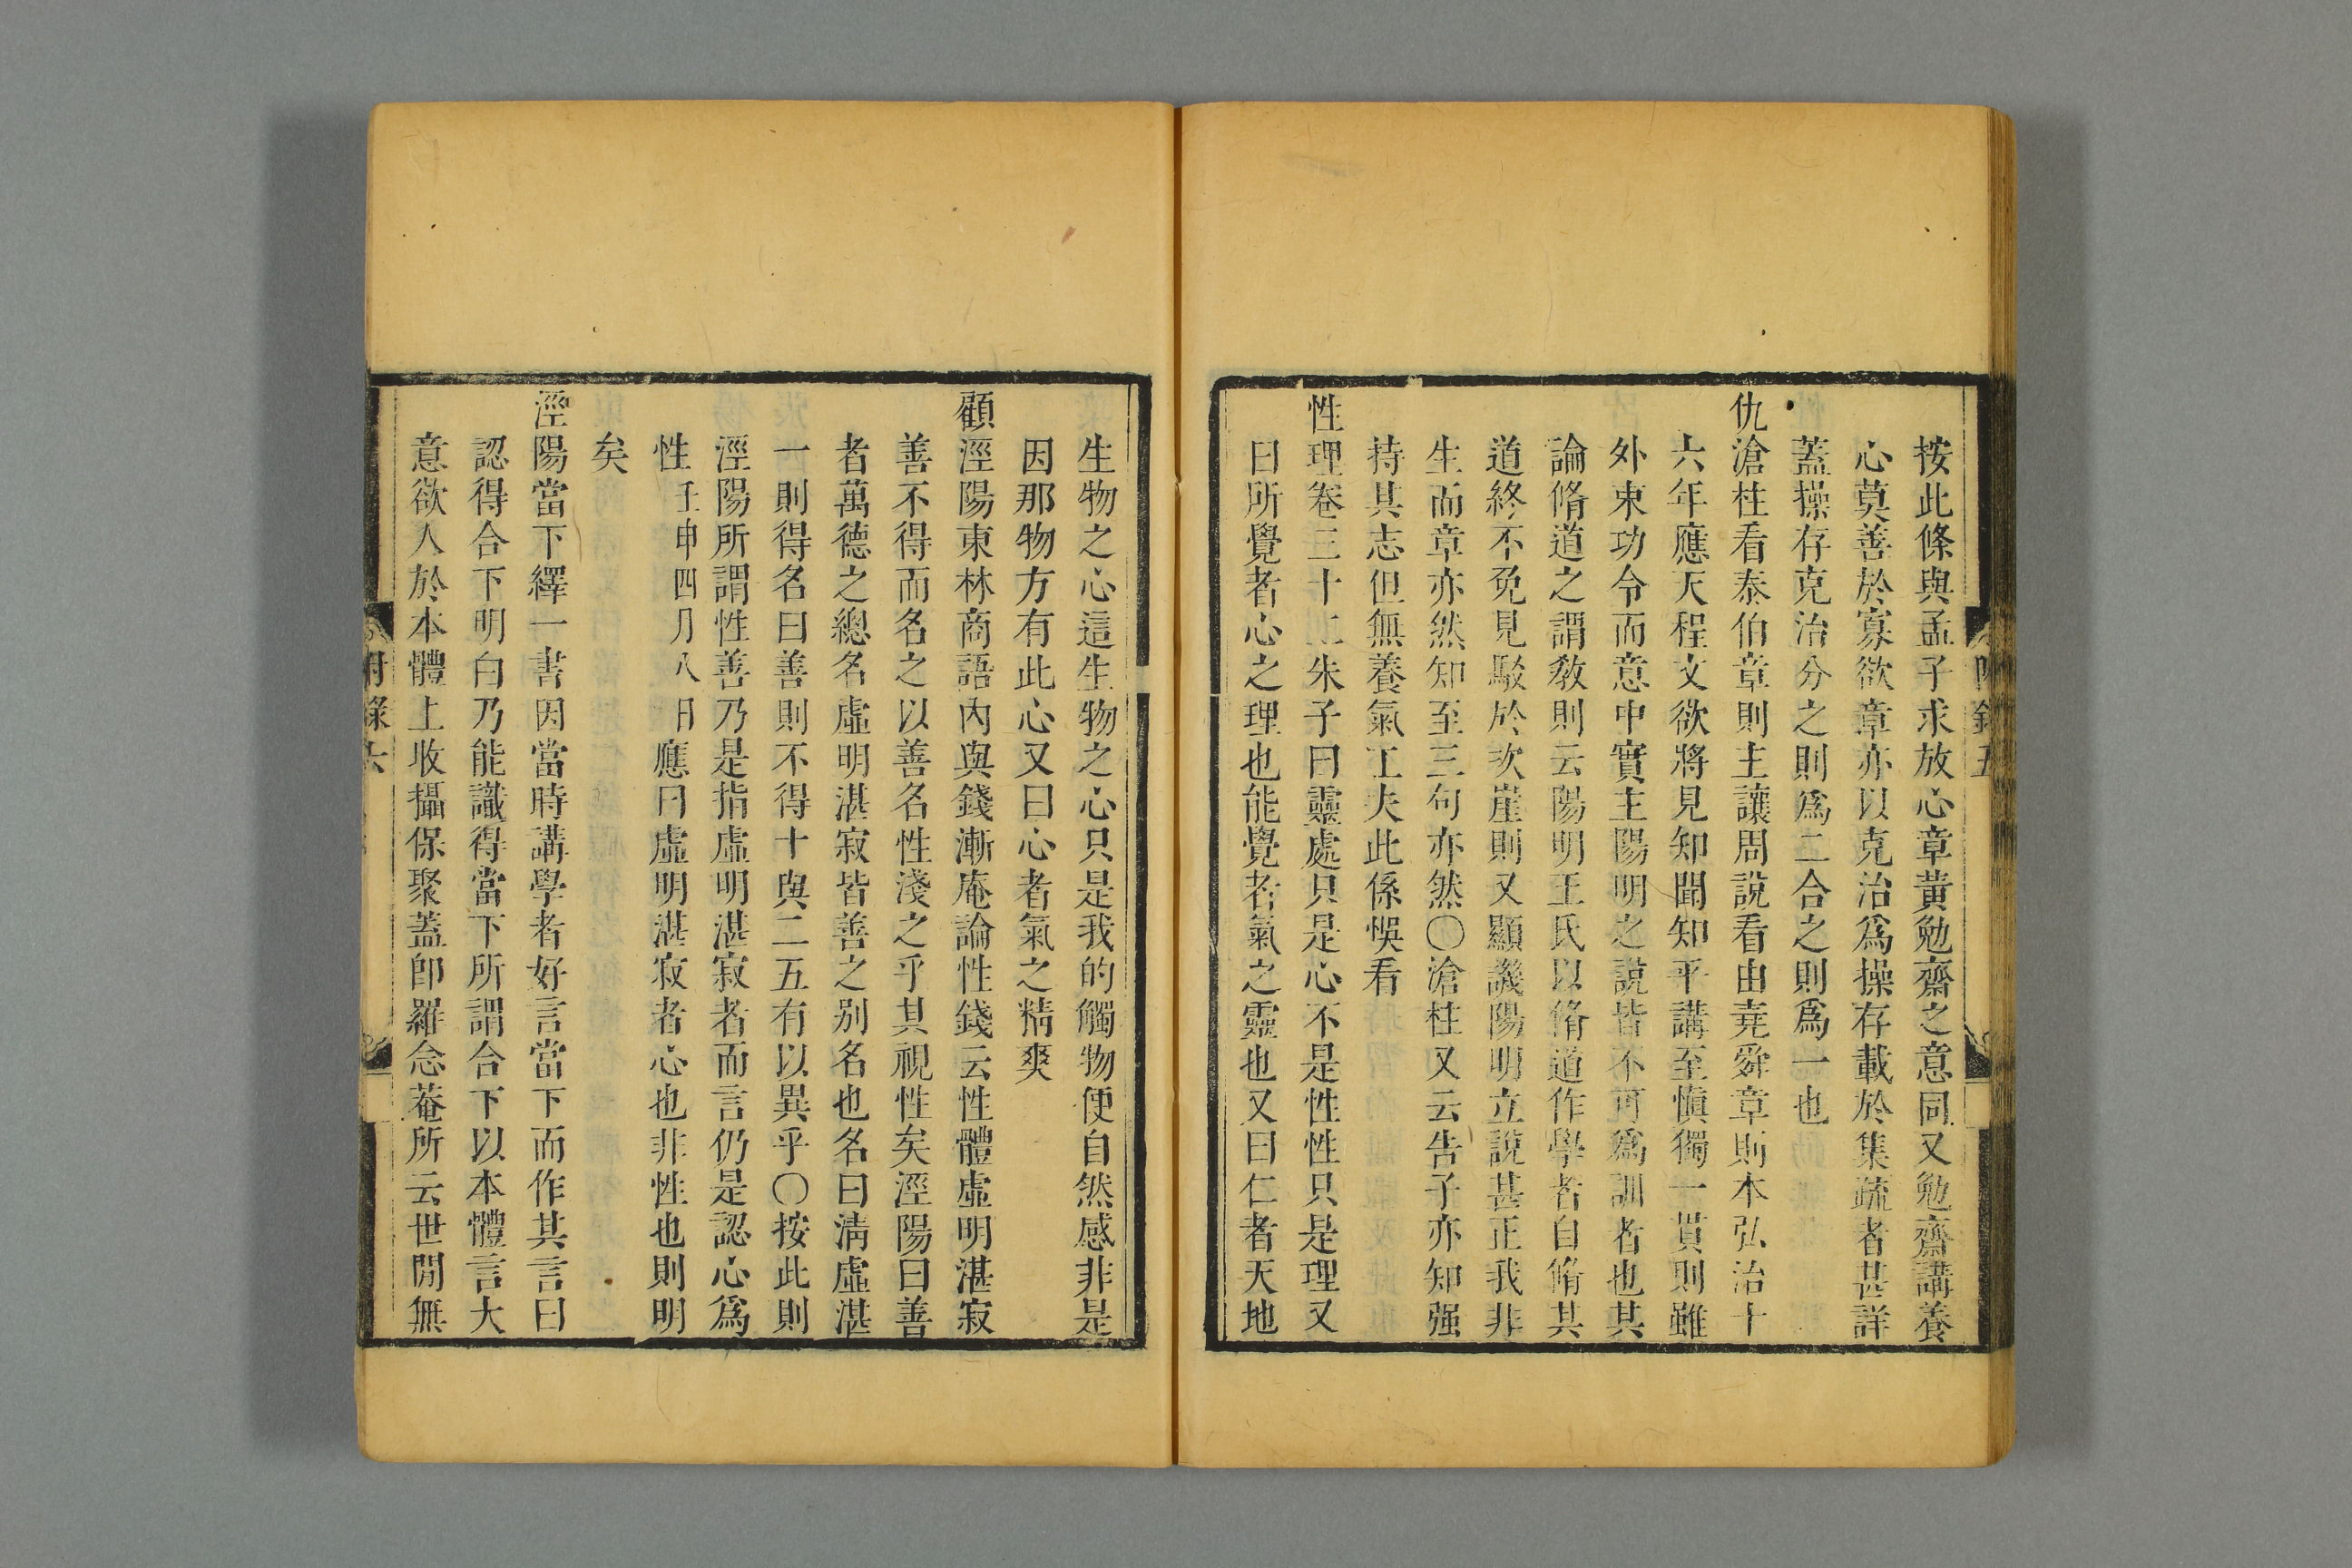 按此條與孟子求放心章黃勉齋之意同又勉齋講養
心莫善於寡欲章亦以克治爲操存載於集疏者甚詳
蓋操存克治分之則爲二合之則爲一也
仇滄柱看泰伯章則主讓周說看由堯舜章則本弘治十
六年應天程文欲將見知聞知平講至愼獨一貫則雖
外束功令而意中實主陽明之說皆不可爲訓者也其
論脩道之謂敎則云陽明王氏以脩道作學者自脩其
道終不免見駁於次崖則又顯譏陽明立說甚正我非
生而章亦然知至三句亦然〇滄柱又云告子亦知强
持其志但無養氣工夫此係悞看
性理卷三十二朱子曰靈處只是心不是性性只是理又
曰所覺者心之理也能覺者氣之靈也又曰仁者天地
附錄五
生物之心這生物之心只是我的觸物便自然感非是
因那物方有此心又曰心者氣之精爽
顧涇陽東林商語內與錢漸庵論性錢云性體虛明湛寂
善不得而名之以善名性淺之乎其視性矣涇陽曰善
者萬德之總名虛明湛寂皆善之别名也名曰淸虛湛
一則得名曰善則不得十與二五有以異乎〇按此則
涇陽所謂性善乃是指虛明湛寂者而言仍是認心爲
性壬申四月八日應曰虛明湛寂者心也非性也則明
矣
涇陽當下繹一書因當時講學者好言當下而作其言曰
認得合下明白乃能識得當下所謂合下以本體言大
意欲人於本體上收攝保聚蓋卽羅念菴所云世閒無
附錄六